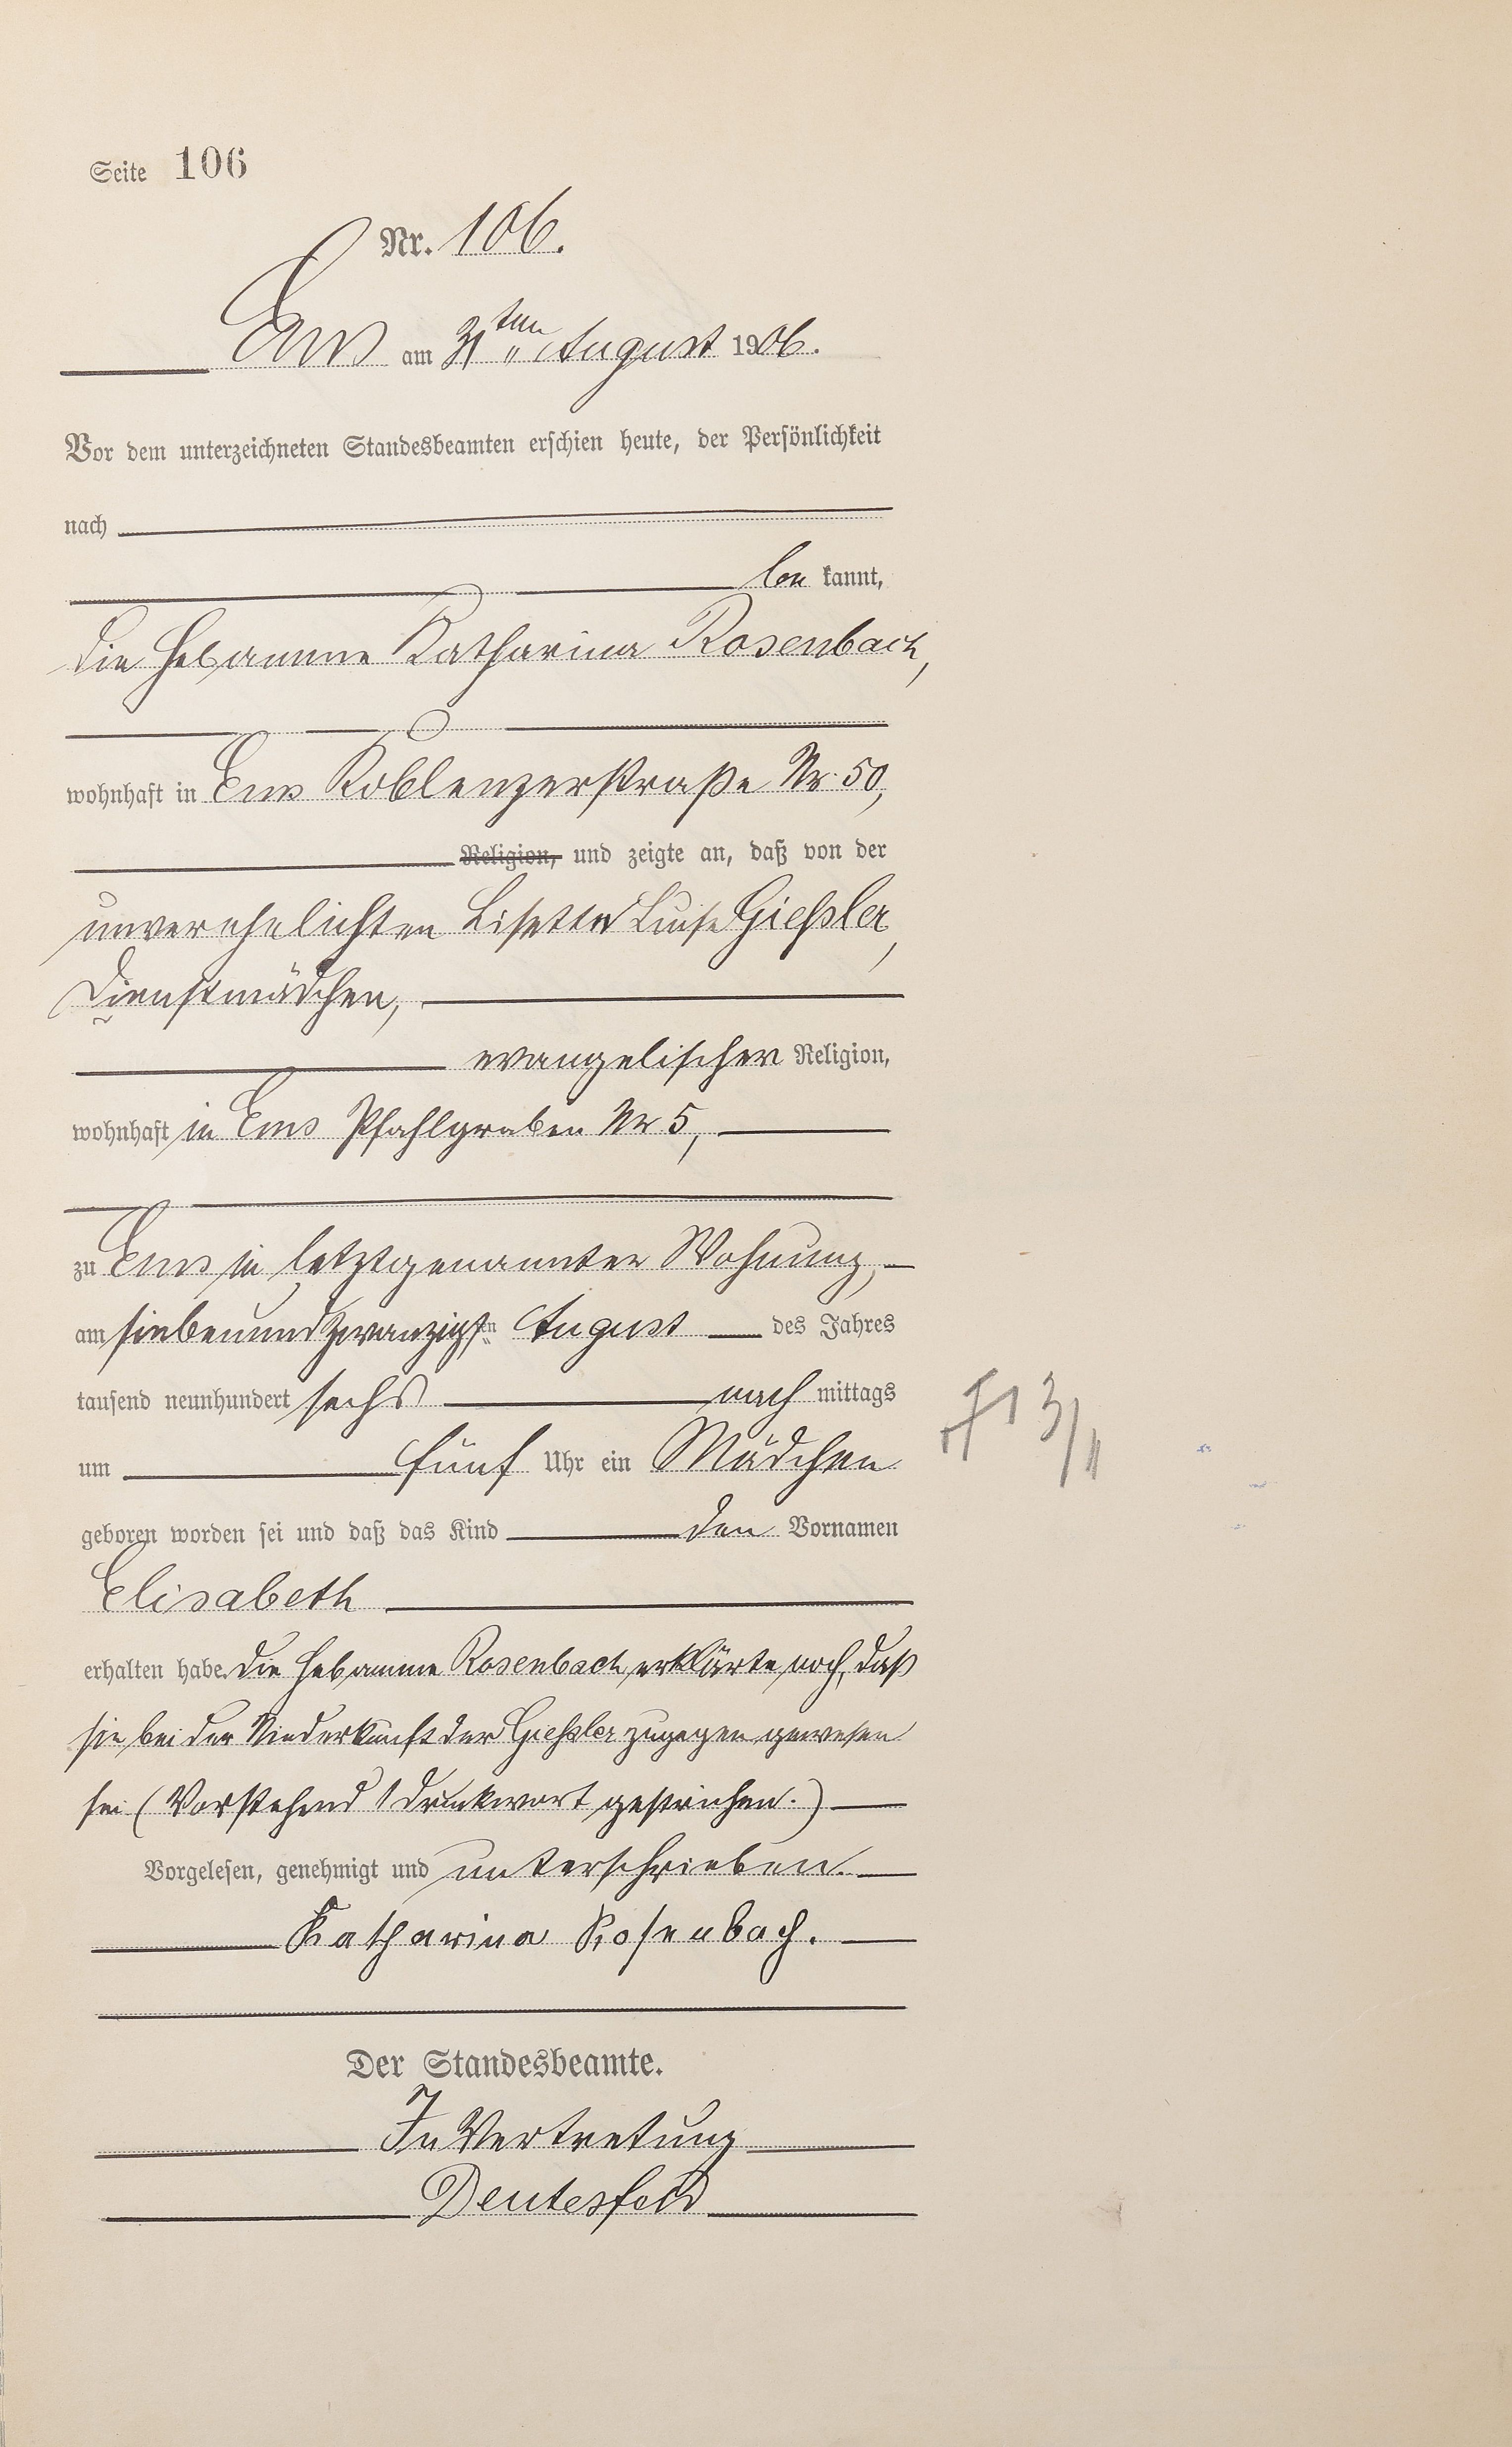 Seite 106
Nr. 106.
Ems am 31ten August 1906.
Vor dem unterzeichneten Standesbeamten erschien heute, der Persönlichkeit
nach
be kannt,
die Hebamme Katharina Rosenbach,
wohnhaft in Ems Koblenzerstraße Nr. 50,
Religion, und zeigte an, daß von der
unverehelichten Lisette Luise Gießler,
Dienstmädchen,
evangelischer Religion,
wohnhaft in Ems Pfahlgraben Nr 5,
zu Ems in letztgenannter Wohnung,
am siebenundzwanzigsten August des Jahres
tausend neunhundert sechs nach mittags
um fünf Uhr ein Mädchen
geboren worden sei und daß das Kind den Vornamen
Elisabeth
erhalten habe. Die Hebamme Rosenbach erklärte noch, daß
sie bei der Niederkunft der Gießler zugegen gewesen
sei (Vorstehend 1 Druckwort gestrichen.)
Vorgelesen, genehmigt und unterschrieben.
Katharina Rosenbach.
Der Standesbeamte.
In Vertretung
Deutesfeld